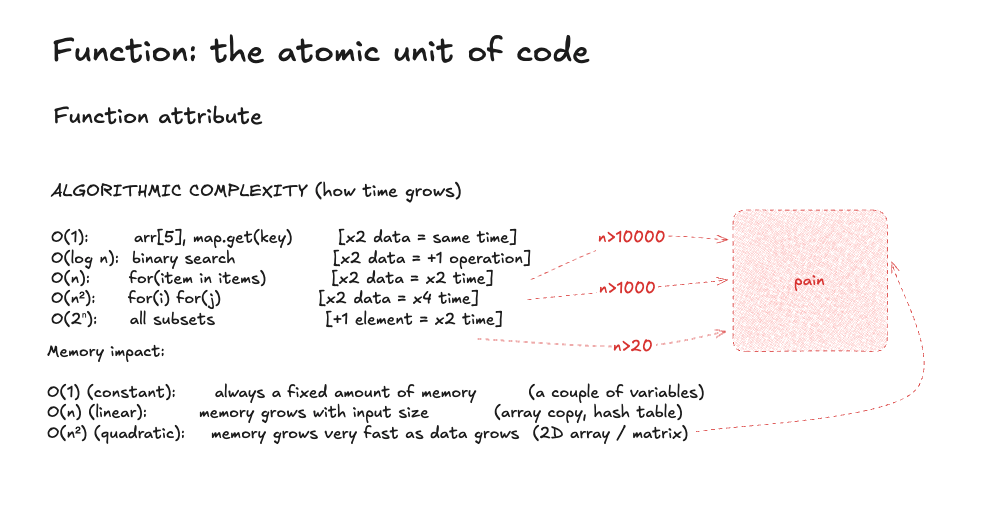 Function: the atomic unit of code
Function attribute
ALGORITHMIC COMPLEXITY (how time grows)
O(1): arr[5], map.get(key) [x2 data = same time]
O(log n): binary search [x2 data = +1 operation]
O(n): for(item in items) [x2 data = x2 time]
O(n²): for(i) for(j) [x2 data = x4 time]
O(2ⁿ): all subsets [+1 element = x2 time]
n>10000
n>1000
n>20
pain
Memory impact:
O(1) (constant): always a fixed amount of memory (a couple of variables)
O(n) (linear): memory grows with input size (array copy, hash table)
O(n²) (quadratic): memory grows very fast as data grows (2D array / matrix)